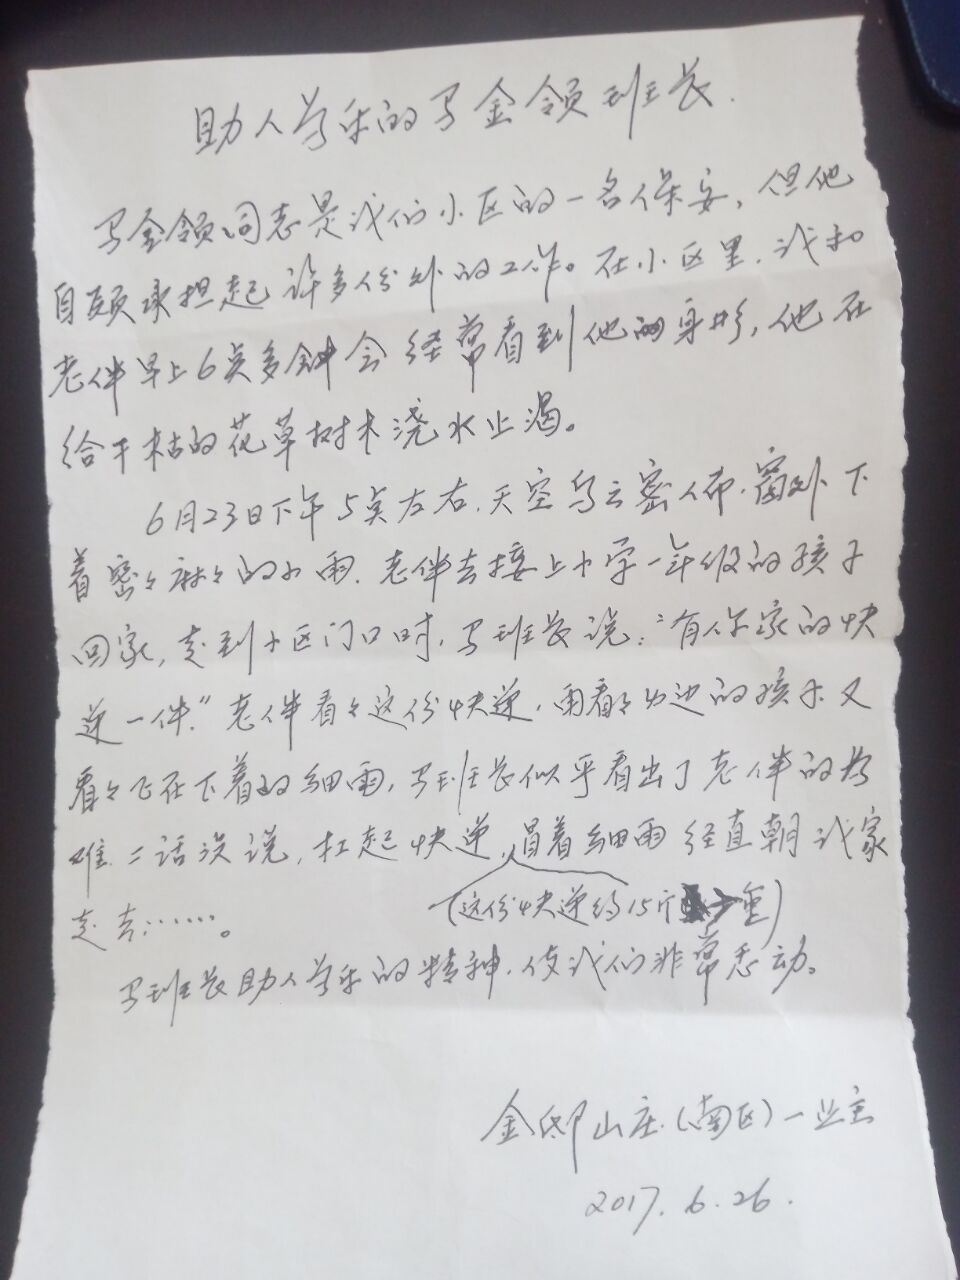 助人为乐的马金领班长.
马金领同志是我们小区的一名保安，但他
自愿承担起许多份外的工作。在小区里，我和
老伴早上6点多钟会经常看到他的身影，他在
给干枯的花草树木浇水止渴。
6月23日下午5点左右，天空乌云密布，窗外下
着密々麻々的小雨，老伴去接上小学一年级的孩子
回家，走到小区门口时，马班长说：“有你家的快
递一件.”老伴看々这份快递，再看々边的孩子又
看々正在下着的细雨，马班长似乎看出了老伴的为
难，二话没说，扛起快递，冒着细雨径直朝我家
走去……。
(这份快递约15斤重)
马班长助人为乐的精神，使我们非常感动。
金邸山庄(南区)一业主
2017.6.26.